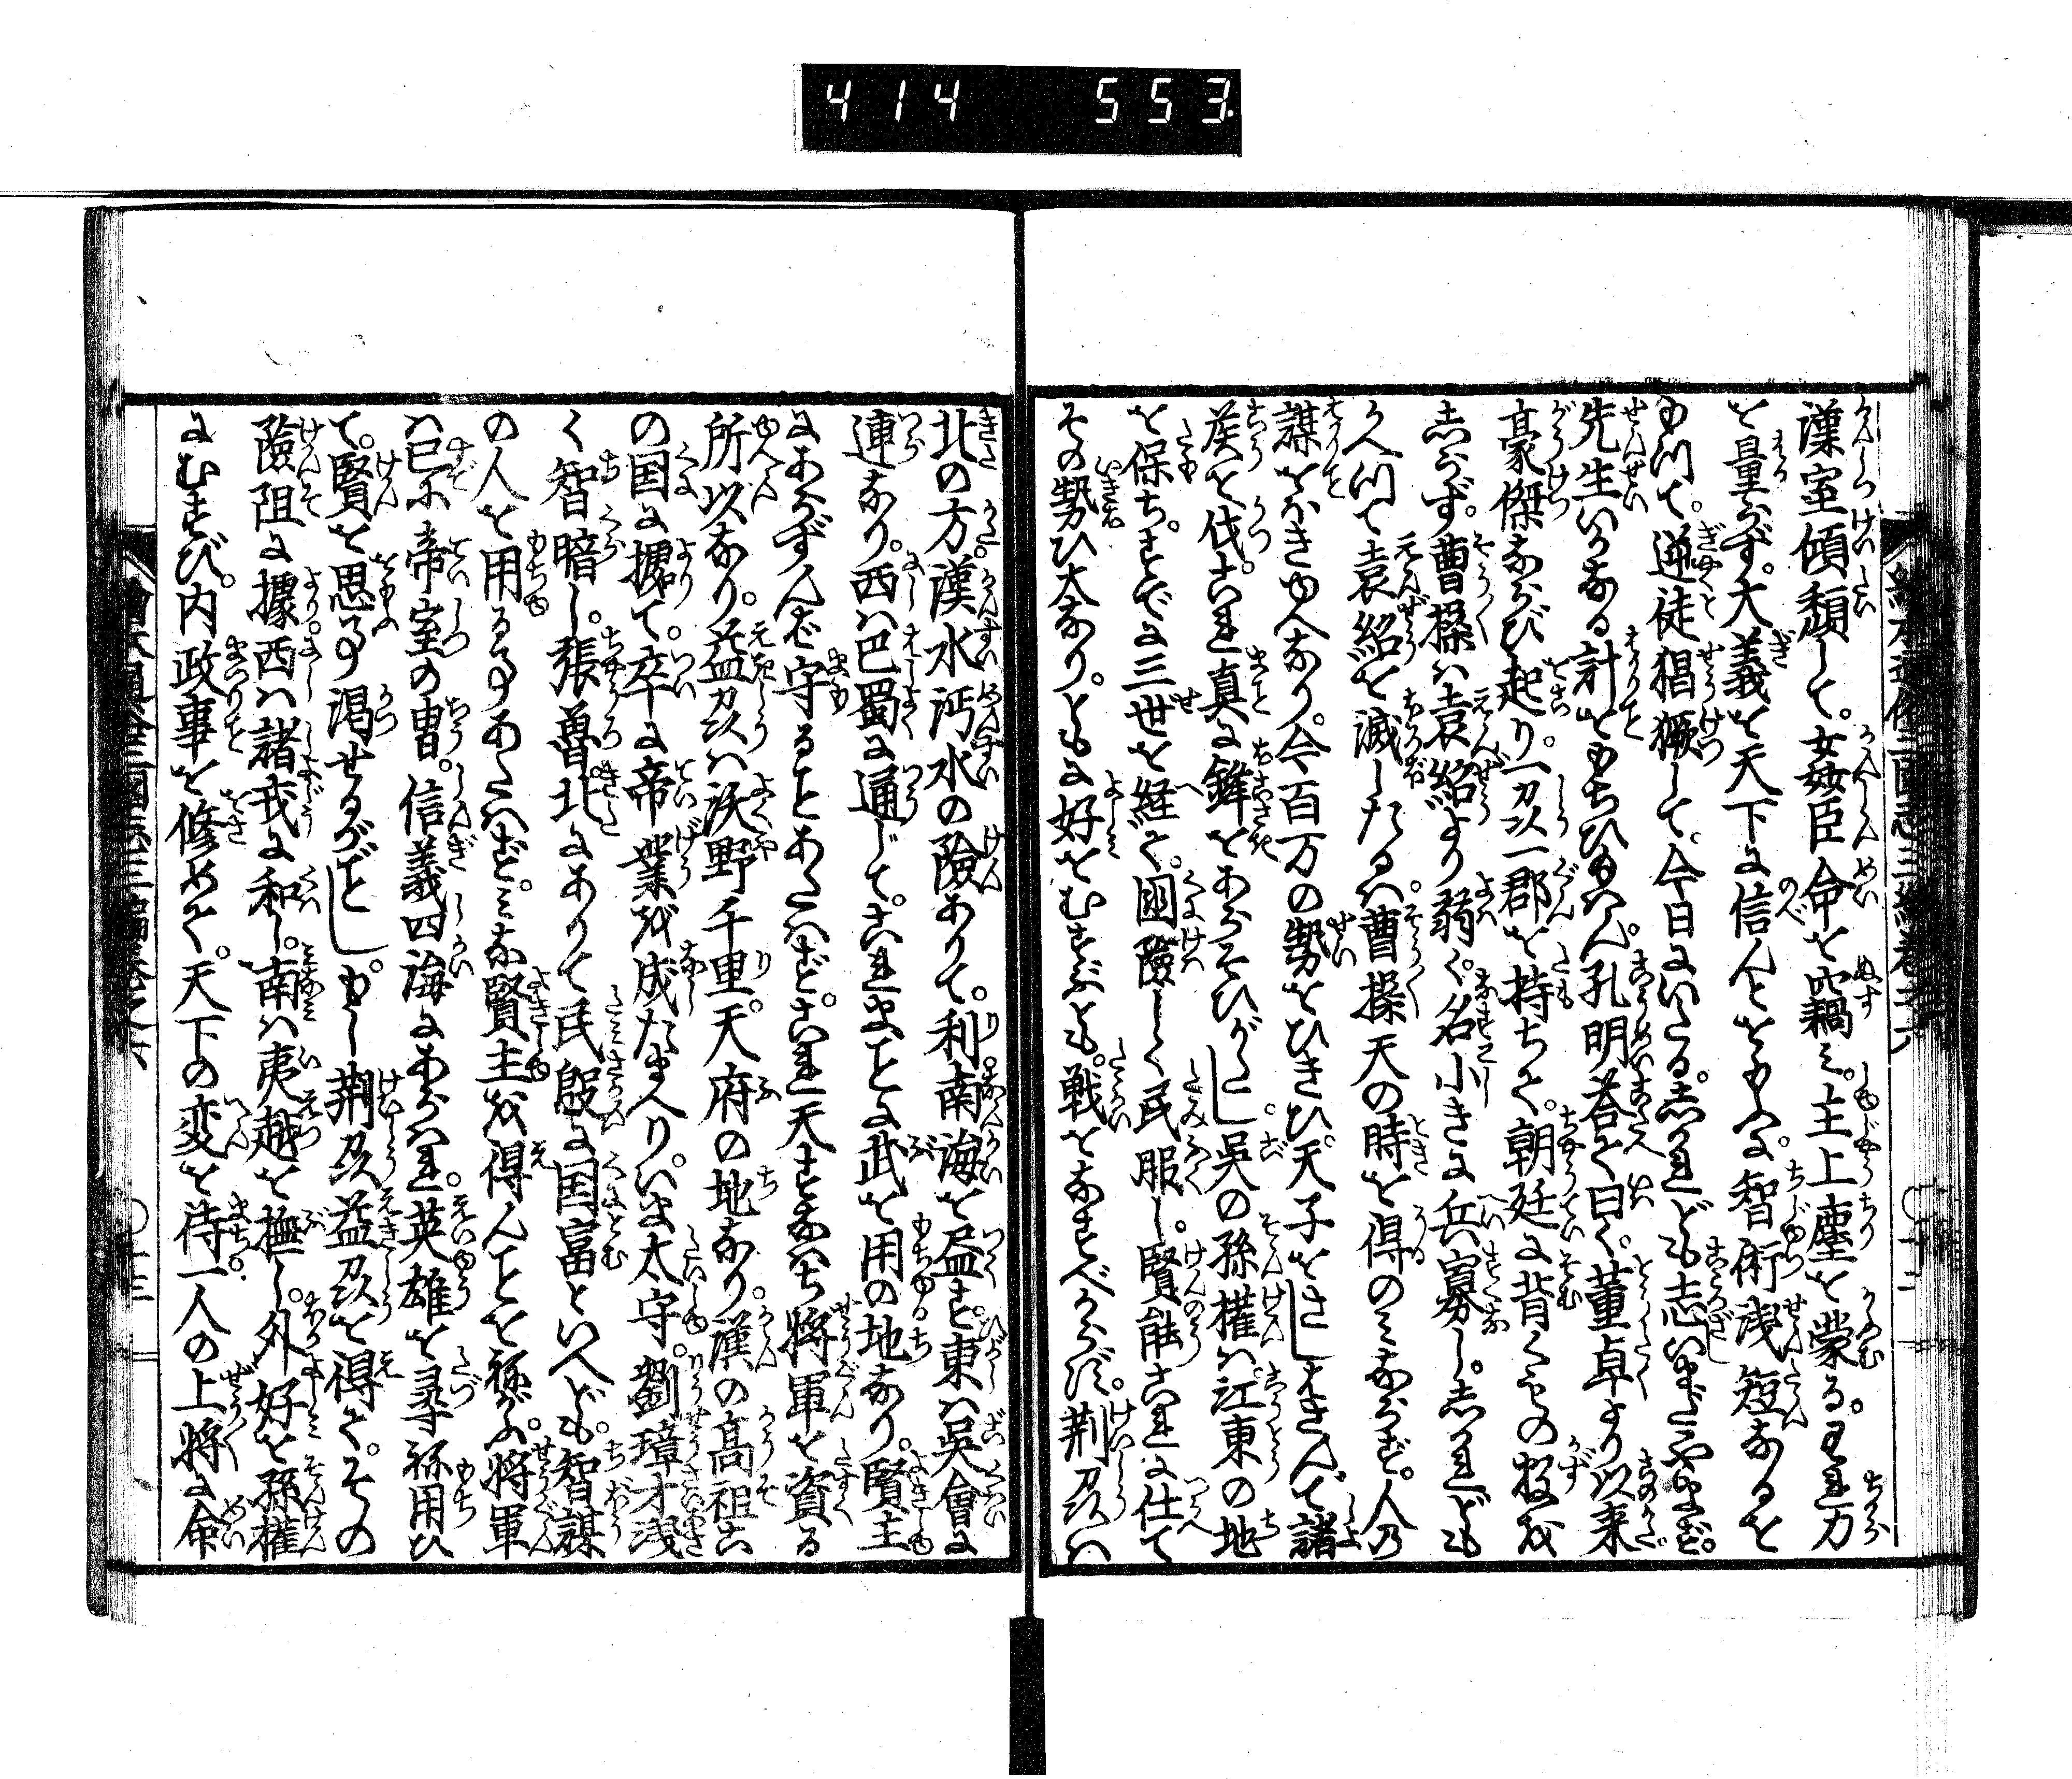 414 553
漢室傾頽して。女姦臣命を竊ミ。主上塵を蒙る。われ力
を量らず。大義を天下に信んとをもへに智術浅短なるを
もつて。逆徒猖獗して。今日にいたる。しかれども志いまだやまず。
先生いかなる計をもちひ給ハん。孔明答て曰く。董卓より以来
豪傑ならび起り。一州一郡を持ちて。朝廷に背くもの数を
しらず。曹操ハ袁紹より弱く。名小きに兵寡し。しかれども
つ井に袁紹を滅したるハ。曹操天の時を得のミならず。人の
謀をほきゆへなり。今百万の勢をひきひ。天子をさしはさんで諸
侯を伐。これ真に鋒をあらそひがたし。呉の孫権ハ。江東の地
を保ち。すでに三世を経て。国険しく民服し。賢能これに仕て
その勢ひ大なり。ともに好をむすぶとも。戦をなすべからず。荊州ハ
北の方。漢水沔水の険ありて。利。南海を盡す。東ハ呉會に
連なり。西ハ巴蜀に通じて。これまことに武を用の地なり。賢主
にあらずんば守ることあたハず。これ天すなハち将軍を資る
所以なり。益州ハ沃野千里。天府の地なり。漢の高祖こ
の国に據て。卒に帝業を成たまへり。いま太守。劉璋才浅
く智暗し。張魯北にありて民殷に国富といへども。智謀
の人を用る事あたハず。ミな賢主を得んことを祢がふ。将軍
ハ已に帝室の冑。信義四海にあらハれ。英雄を尋祢用ひ
て。賢を思ふ事渇せるがごとし。もし荊州益州を得て。その
険阻に據。西ハ諸戎に和し。南ハ夷越を撫し。外好を孫権
にむすび。内政事を修めて。天下の変を待。一人の上将に命